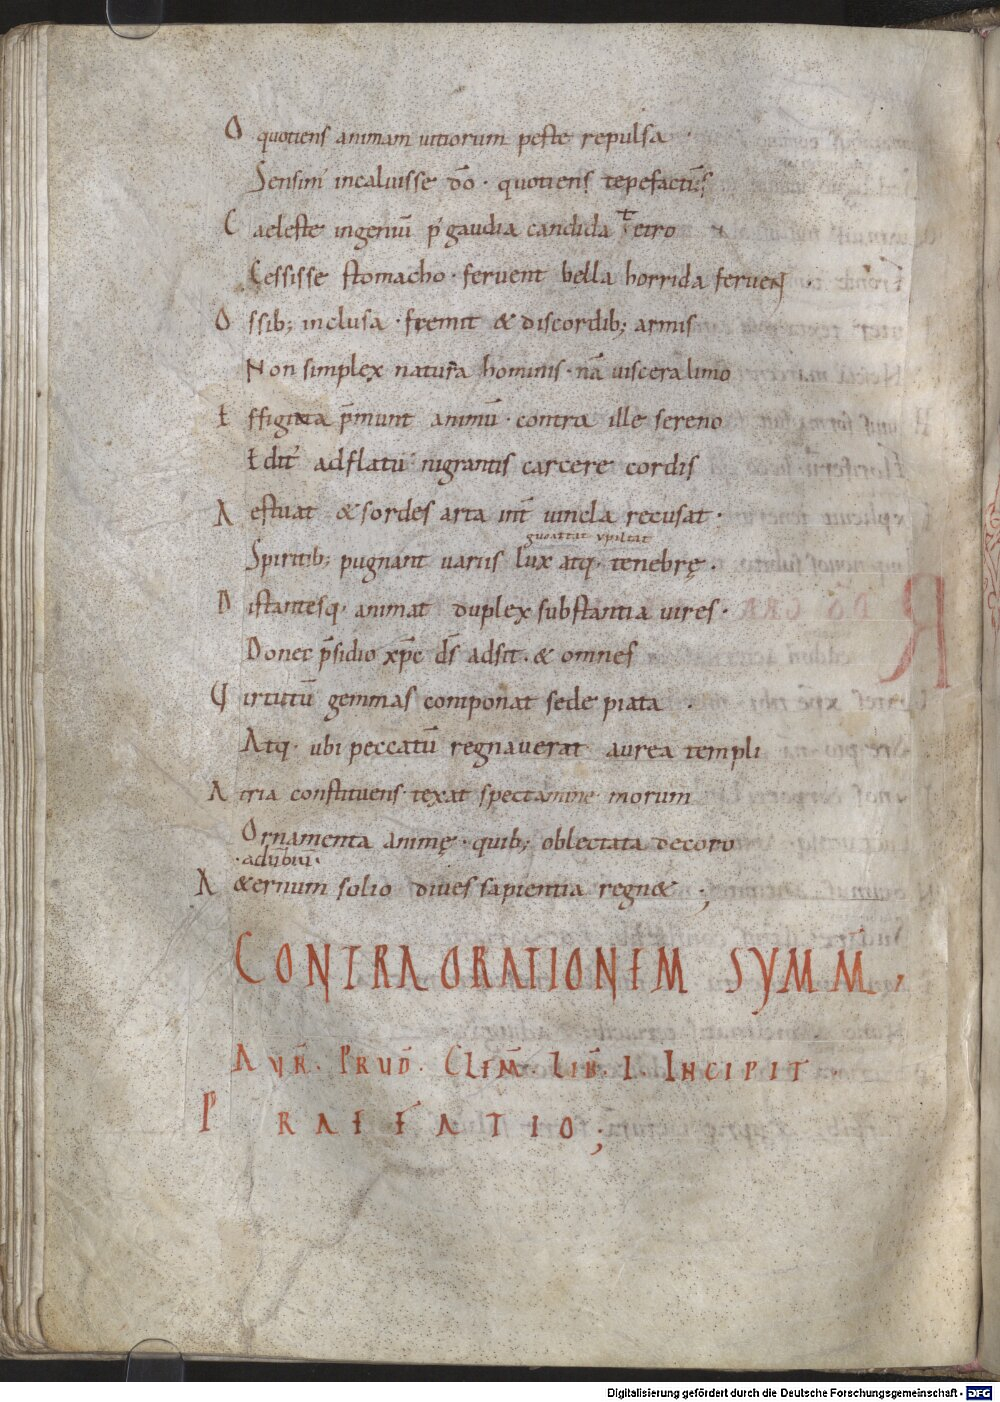 O quotiens animam uitiorum peste repulsa ·
Sensim incaluisse dō · quotiens tepefactū
Caeleste ingeniū p̄ gaudia candida tetro
Cessisse stomacho · feruent bella horrida feruent ·
Ossib; inclusa · fremit & discordib; armis
Non simplex natura hominis · nā uiscera limo
Effigiata p̄munt animū · contra ille sereno
Edit᾽ adflatu nigrantis carcere cordis
Aestuat & sordes arta int̄ uincla recusat ·
Spiritib; pugnant uariis lux atq· tenebrę ·
Distantesq· animat duplex substantia uires ·
Donec p̄sidio xp̄c d̄s adsit · & omnes
Uirtutū gemmas componat sede piata ·
Atq· ubi peccatū regnauerat aurea templi
Atria constituens · texat spectamine morum
Ornamenta animę · quib; oblectata decoro
A&ernum solio diues sapientia regn& ·;
CONTRA ORATIONEM SYMM̄,
AUR̄ · PRUD̄ · CLEM̄ · LIB̄ · I INCIPIT ·
PRAEFATIO;
Digitalisierung gefördert durch die Deutsche Forschungsgemeinschaft - DFG